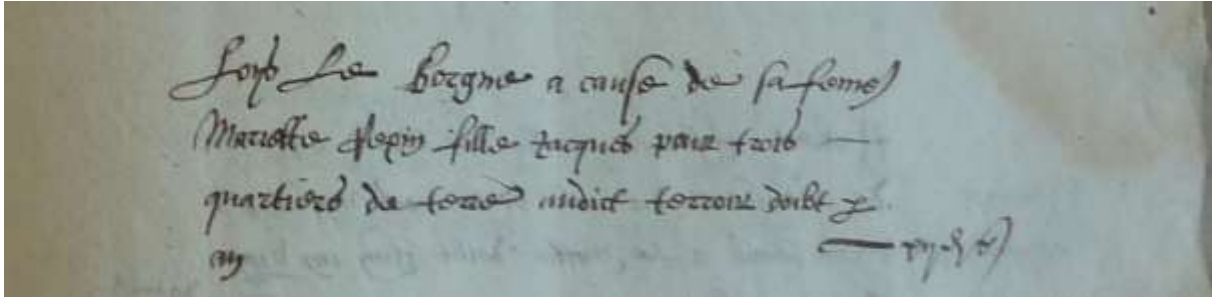 Loys Le Borgne a cause de sa feme
Mariette fille Jacques pour trois
quartiers de terre audict terroir doibt p
an